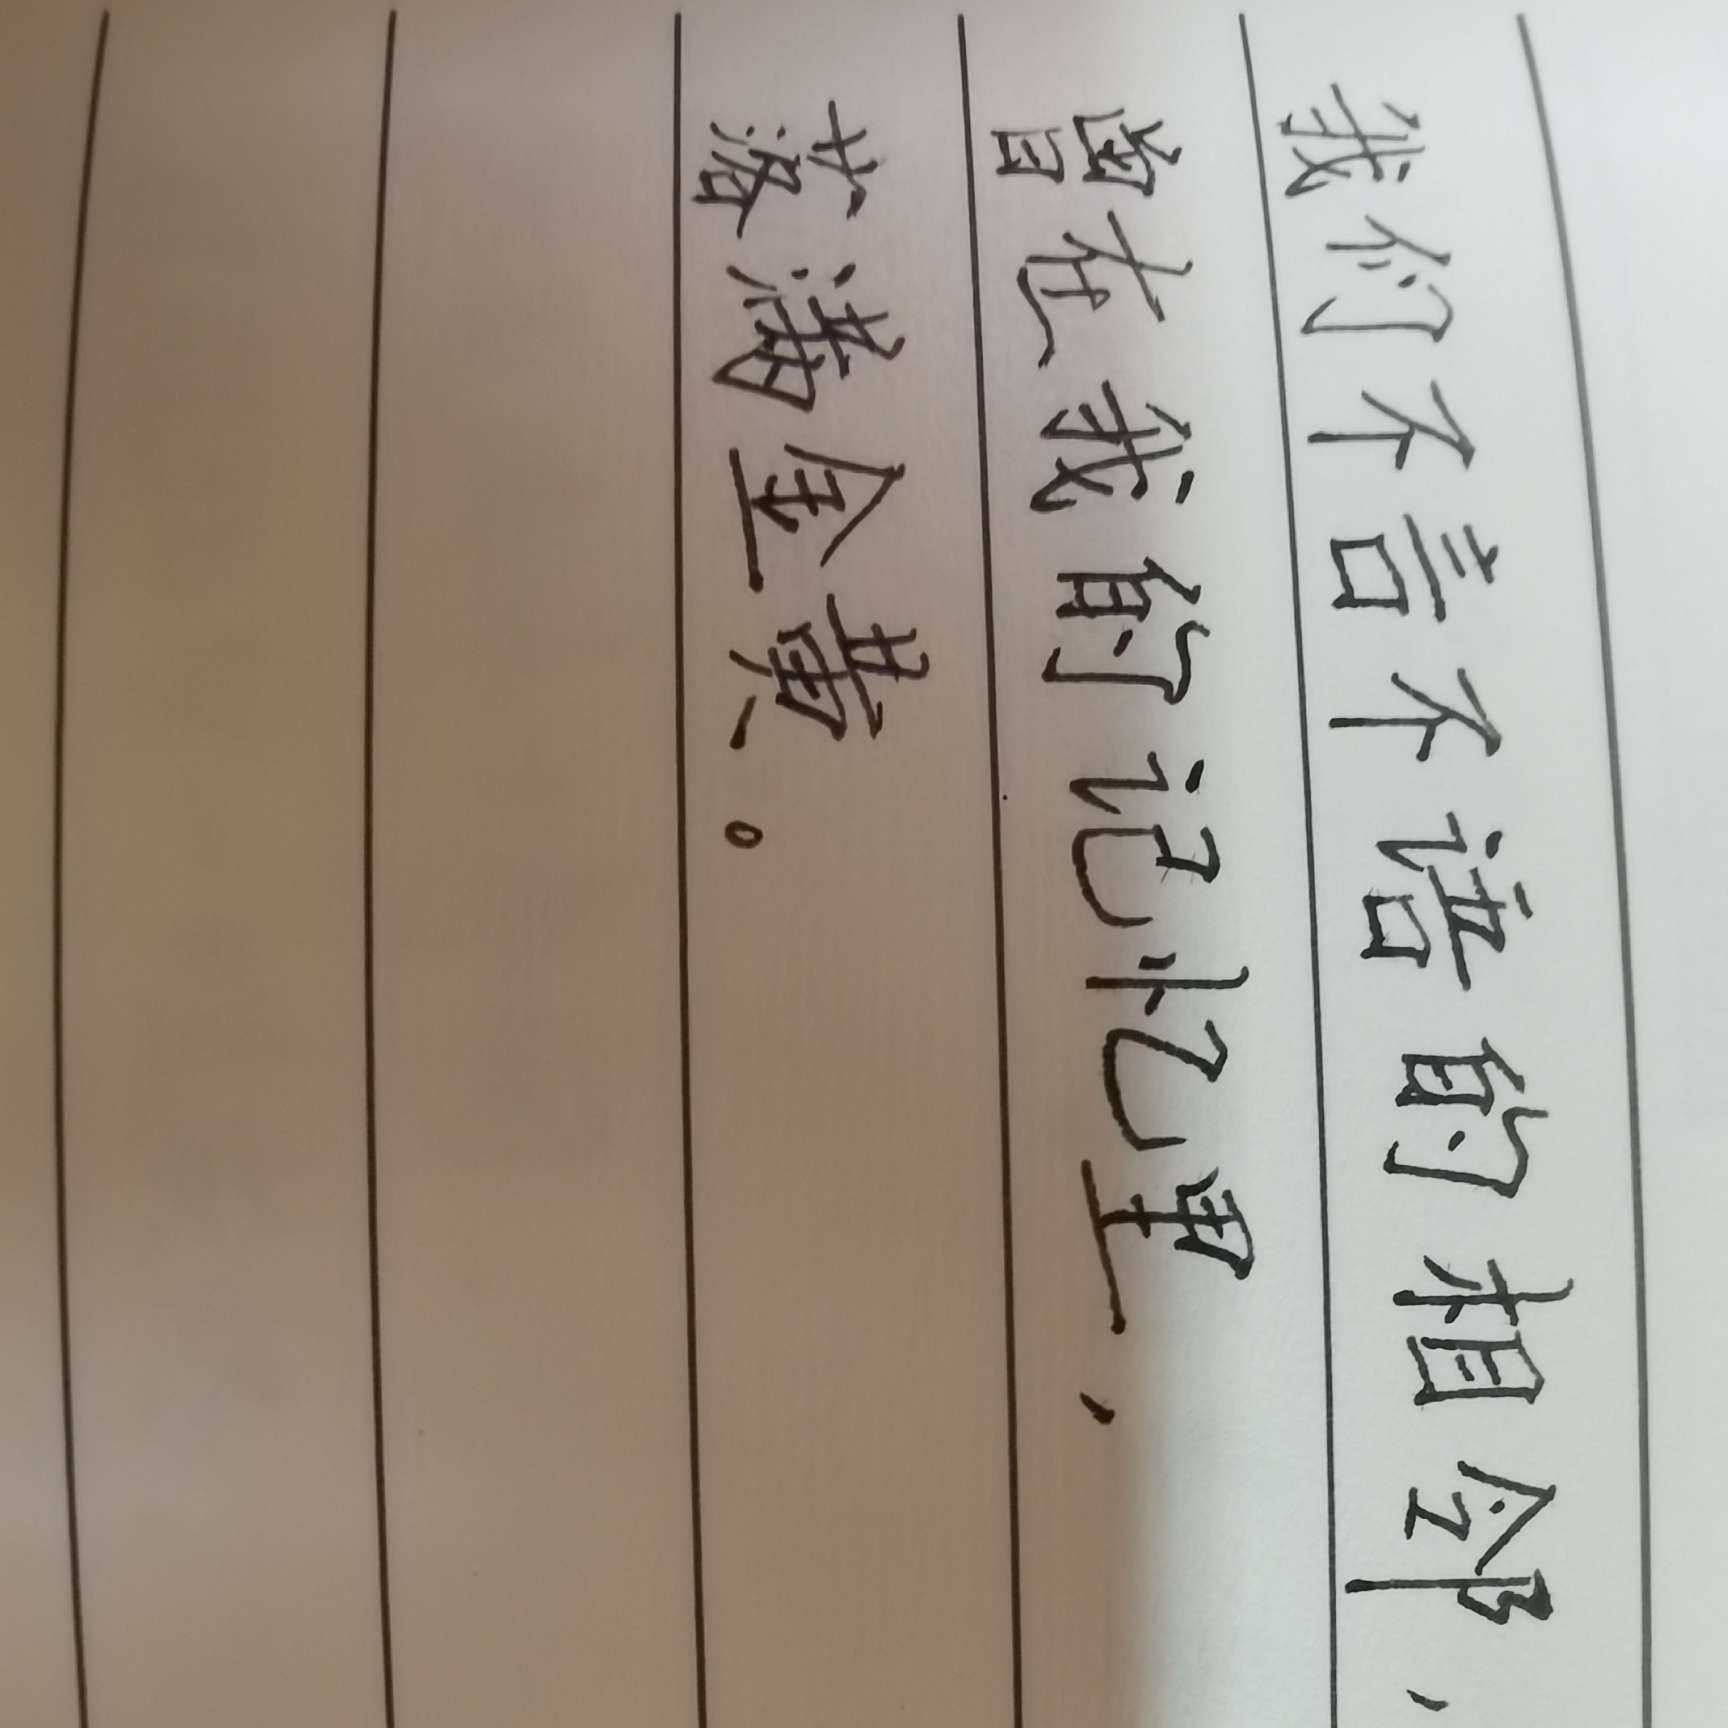 我们不言不语的相邻，
曾在我的记忆里，
落满金黄。